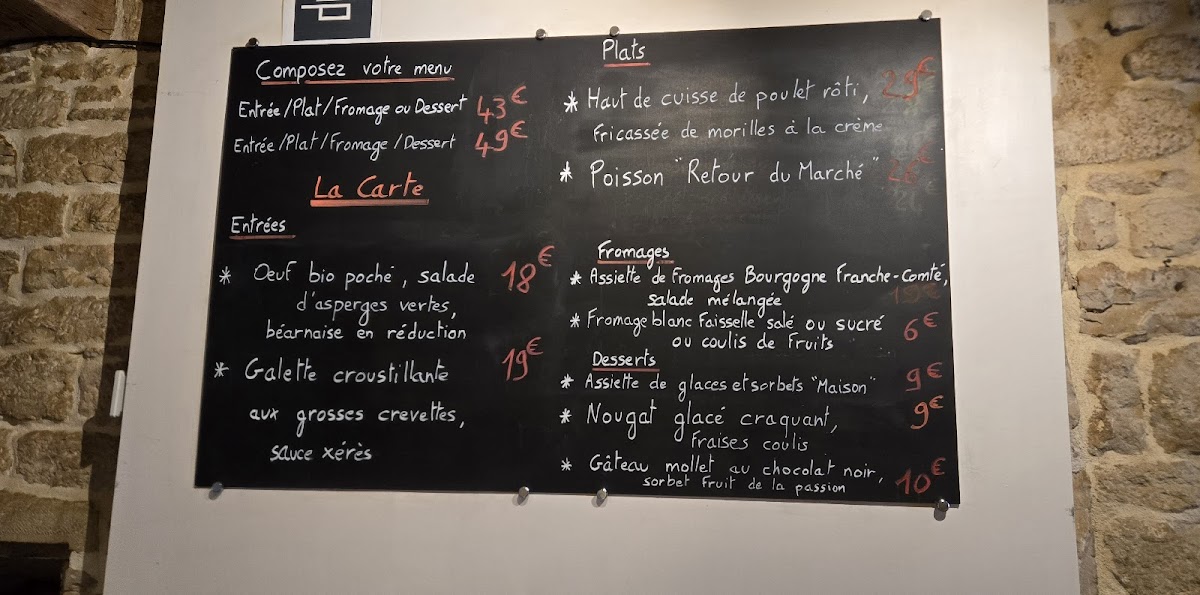 Composez votre menu
Entrée/Plat/Fromage ou Dessert 43€
Entrée/Plat/Fromage/Dessert 49€
La Carte
Entrées
* Oeuf bio poché, salade 18€
d'asperges vertes,
béarnaise en réduction
* Galette croustillante 19€
aux grosses crevettes,
sauce xérès
Plats
* Haut de cuisse de poulet rôti, 29€
Fricassée de morilles à la crème
* Poisson "Retour du Marché"
Fromages
* Assiette de Fromages Bourgogne Franche-Comté,
salade mélangée
* Fromage blanc Faisselle salé ou sucré 6€
ou coulis de Fruits
Desserts
* Assiette de glaces et sorbets "Maison" 9€
* Nougat glacé craquant, 9€
Fraises coulis
* Gâteau mollet au chocolat noir, 10€
sorbet Fruit de la passion